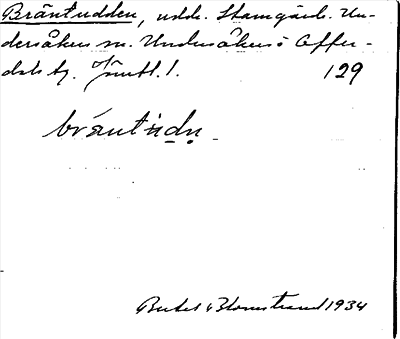 Bräntudden, udde. Stamgärd. Un-
dersåkers sn. Undersåkers o Offer-
dals tg. Jämtl. l. 129
bräntudn
Bertel Blomstrand 1934